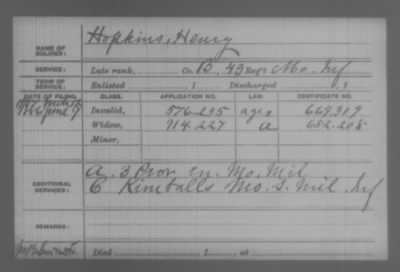 NAME OF SOLDIER: Hopkins, Henry
SERVICE: Late rank, Co. B, 43 Reg't Mo. Inf
TERM OF SERVICE: Enlisted , 1 Discharged , 1
DATE OF FILING. CLASS. APPLICATION NO. LAW. CERTIFICATE NO.
Invalid, 576.235 669.319
June 9 Widow, 914.227 a 682.208
Minor,
ADDITIONAL SERVICES: A. 3 Prov. En. Mo. Mil
C Kimballs Mo. S. Mil. Inf
REMARKS:
Died , 1 , at